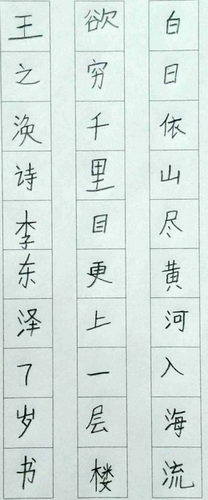 白日依山尽黄河入海流
欲穷千里目更上一层楼
王之涣诗李东泽7岁书